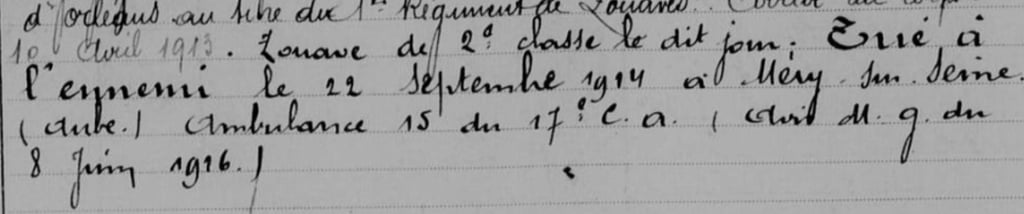 au titre du 1er Régiment de Zouaves.
10 Avril 1913. Zouave de 2e classe le dit jour. Tué à
l'ennemi le 22 Septembre 1914 à Méry sur Seine.
(Aube.) Ambulance 15 du 17e C. a. (Avis M. g. du
8 Juin 1916.)